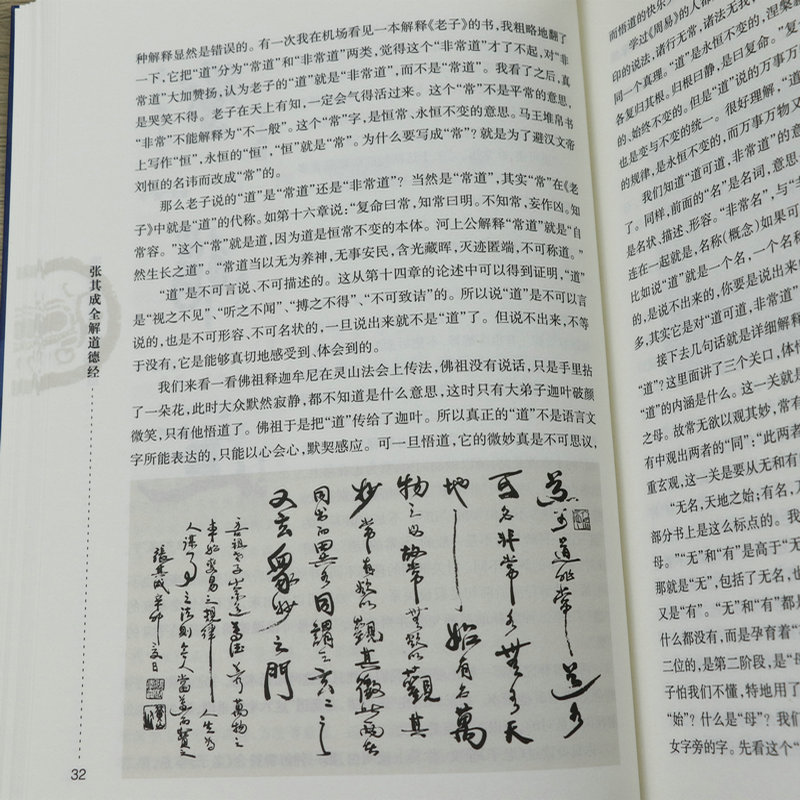 种解释显然是错误的。有一次我在机场看见一本解释《老子》的书，我粗略地翻了
一下，它把“道”分为“常道”和“非常道”两类，觉得这个“非常道”才了不起，对“非
常道”大加赞扬，认为老子的“道”就是“非常道”，而不是“常道”。我看了之后，真
是哭笑不得。老子在天上有知，一定会气得活过来。这个“常”不是平常的意思，
“非常”不能解释为“不一般”。这个“常”字，是恒常、永恒不变的意思。马王堆帛书
上写作“恒”，永恒的“恒”，“恒”就是“常”。为什么要写成“常”？就是为了避汉文帝
刘恒的名讳而改成“常”的。
那么老子说的“道”是“常道”还是“非常道”？当然是“常道”，其实“常”在《老
子》中就是“道”的代称。如第十六章说：“复命曰常，知常曰明。不知常，妄作凶。知
常容。”这个“常”就是道，因为道是恒常不变的本体。河上公解释“常道”就是“自
然生长之道”。“常道当以无为养神，无事安民，含光藏晖，灭迹匿端，不可称道。”
“道”是不可言说、不可描述的。这从第十四章的论述中可以得到证明，“道”
是“视之不见”、“听之不闻”、“搏之不得”、“不可致诘”的。所以说“道”是不可以言
说的，也是不可形容、不可名状的，一旦说出来就不是“道”了。但说不出来，不等
于没有，它是能够真切地感受到、体会到的。
我们来看一看佛祖释迦牟尼在灵山法会上传法，佛祖没有说话，只是手里拈
了一朵花，此时大众默然寂静，都不知道是什么意思，这时只有大弟子迦叶破颜
微笑，只有他悟道了。佛祖于是把“道”传给了迦叶。所以真正的“道”不是语言文
字所能表达的，只能以心会心，默契感应。可一旦悟道，它的微妙真是不可思议，
道可道非常道名
可名非常名無名天
地之始有名萬
物之母故常無欲以觀其
妙常有欲以觀其徼此兩者
同出而異名同謂之玄玄之
又玄衆妙之門
張其成辛卯夏日
张其成全解道德经
32
而悟道的快乐
学过《周易》的人都
印的说法，诸行无常，诸法无我，涅槃
同一个真理。“道”是永恒不变的，
各复归其根。归根曰静，是曰复命。”复
的、始终不变的。但是“道”说的万事万
也是变与不变的统一。很好理解，“道
的规律，是永恒不变的，而万事万物又
我们知道“道可道，非常道”的意
了。同样，前面的“名”是名词，意思
是名状、描述、形容。“非常名”，与“
连在一起就是，名称（概念）如果可
比如说“道”就是一个名，一个名称
的，是说不出来的，你要是说出来
多，其实它是对“道可道，非常道”
接下去几句话就是详细解释
“道”？这里面讲了三个关口，体悟
“道”的内涵是什么。这一关就是
之母。故常无欲以观其妙，常有
有中观出两者的“同”：“此两者
重玄观，这一关是要从无和有
“无名，天地之始；有名，万
部分书上是这么标点的。我
母。”“无”和“有”是高于“无
那就是“无”，包括了无名，也
又是“有”。“无”和“有”都是
什么都没有，而是孕育着“
二位的，是第二阶段，是“母
子怕我们不懂，特地用了
“始”？什么是“母”？我们
女字旁的字。先看这个“